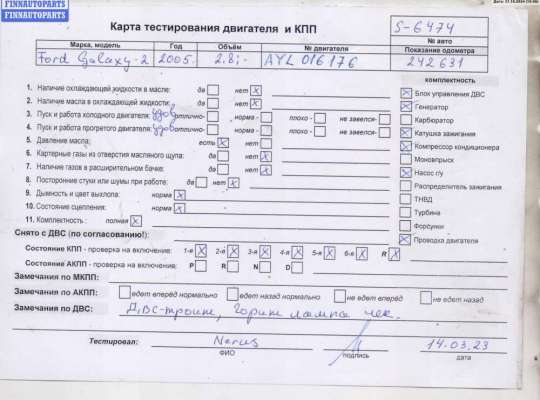 FINNAUTOPARTS
FINNAUTOPARTS
Карта тестирования двигателя и КПП
S-6474
№ авто
Марка, модель
Год
Объём
№ двигателя
Показание одометра
Ford Galaxy-2
2005
2.8;-
AYL 016176
242631
комплектность
1. Наличие охлаждающей жидкости в масле: да нет X
2. Наличие масла в охлаждающей жидкости: да нет X
3. Пуск и работа холодного двигателя: удов отлично- норма - плохо - не завелся-
4. Пуск и работа прогретого двигателя: удов отлично- норма - плохо - не завелся-
5. Давление масла: есть X нет
6. Картерные газы из отверстия масляного щупа: да нет X
7. Наличие газов в расширительном бачке: да нет X
8. Посторонние стуки или шумы при работе: да нет X
9. Дымность и цвет выхлопа: норма X
10. Состояние сцепления: норма X
11. Комплектность : полная X
X Блок управления ДВС
X Генератор
Карбюратор
X Катушка зажигания
X Компрессор кондиционера
Моновпрыск
X Насос г/у
Распределитель зажигания
ТНВД
Турбина
Форсунки
X Проводка двигателя
Снято с ДВС (по согласованию!):
Состояние КПП - проверка на включение: 1-я X 2-я X 3-я X 4-я X 5-я X 6-я X R X
Состояние АКПП - проверка на включение: P R N D
Замечания по МКПП:
Замечания по АКПП: едет вперёд нормально едет назад нормально не едет вперёд не едет назад
Замечания по ДВС: ДВС-троит, горит лампа чек.
Тестировал: Nerus 14.03.23
ФИО подпись дата